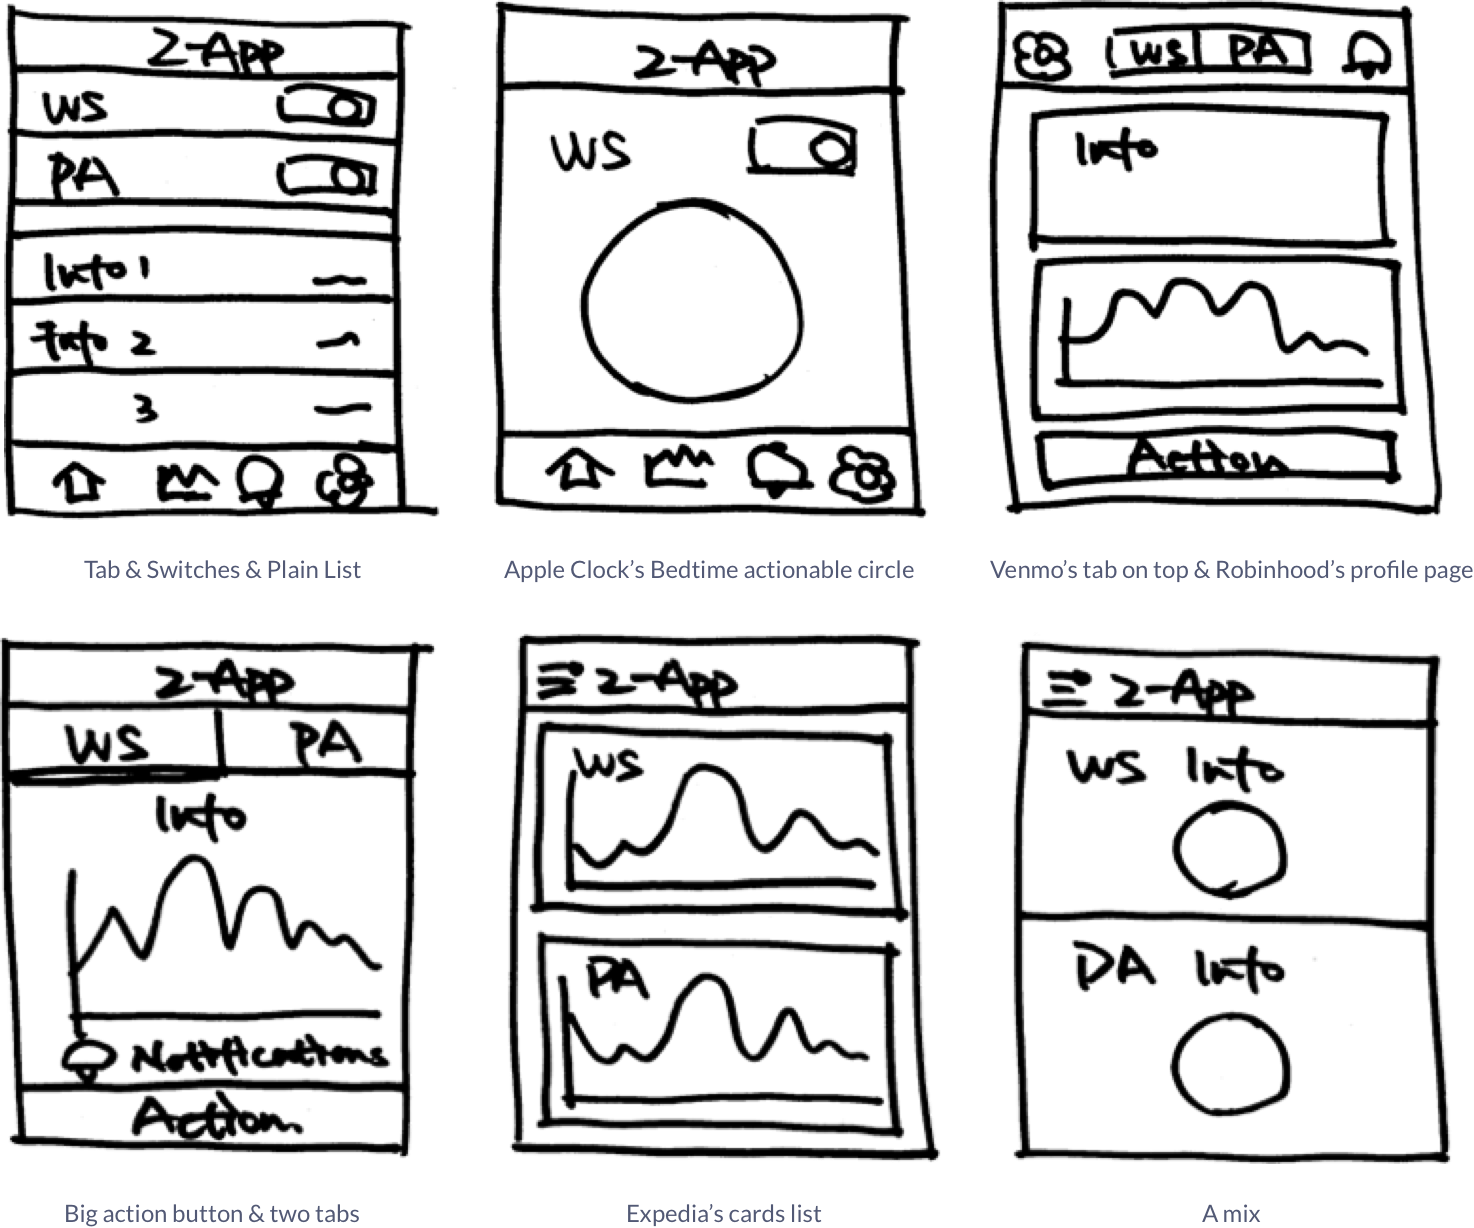 2-App
WS
PA
Info 1
Info 2
3
Tab & Switches & Plain List
2-App
WS
Apple Clock’s Bedtime actionable circle
WS PA
Info
Action
Venmo’s tab on top & Robinhood’s profile page
2-App
WS PA
Info
Notifications
Action
Big action button & two tabs
2-App
WS
PA
Expedia’s cards list
2-App
WS Info
PA Info
A mix